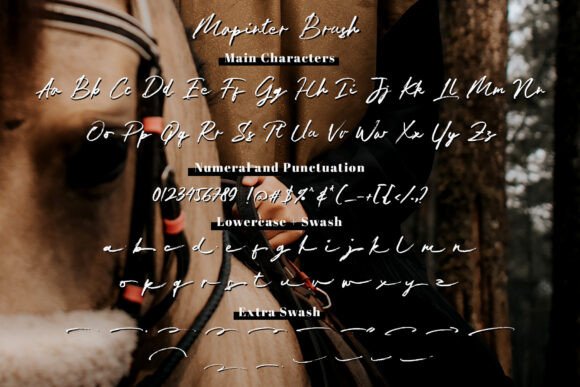 Mopinter Brush
Main Characters
Aa Bb Cc Dd Ee Ff Gg Hh Ii Jj Kk Ll Mm Nn
Oo Pp Qq Rr Ss Tt Uu Vv Ww Xx Yy Zz
Numeral and Punctuation
0123456789 !@#$%^&*(_-+[{</.,?
Lowercase + Swash
a b c d e f g h i j k l m n
o p q r s t u v w x y z
Extra Swash